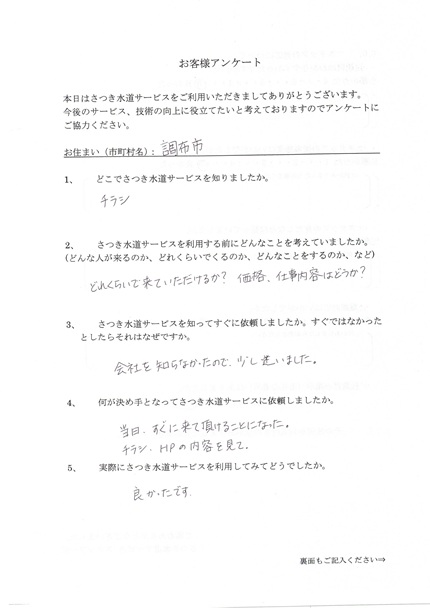 お客様アンケート
本日はさつき水道サービスをご利用いただきましてありがとうございます。
今後のサービス、技術の向上に役立てたいと考えておりますのでアンケートに
ご協力ください。
お住まい（市町村名）：調布市
1、 どこでさつき水道サービスを知りましたか。
チラシ
2、 さつき水道サービスを利用する前にどんなことを考えていましたか。
(どんな人が来るのか、どれくらいでくるのか、どんなことをするのか、など)
どれくらいで来ていただけるか？ 価格、仕事内容はどうか？
3、 さつき水道サービスを知ってすぐに依頼しましたか。すぐではなかった
としたらそれはなぜですか。
会社を知らなかったので、少し迷いました。
4、 何が決め手となってさつき水道サービスに依頼しましたか。
当日、すぐに来て頂けることになった。
チラシ、HPの内容を見て。
5、 実際にさつき水道サービスを利用してみてどうでしたか。
良かったです。
裏面もご記入ください⇒